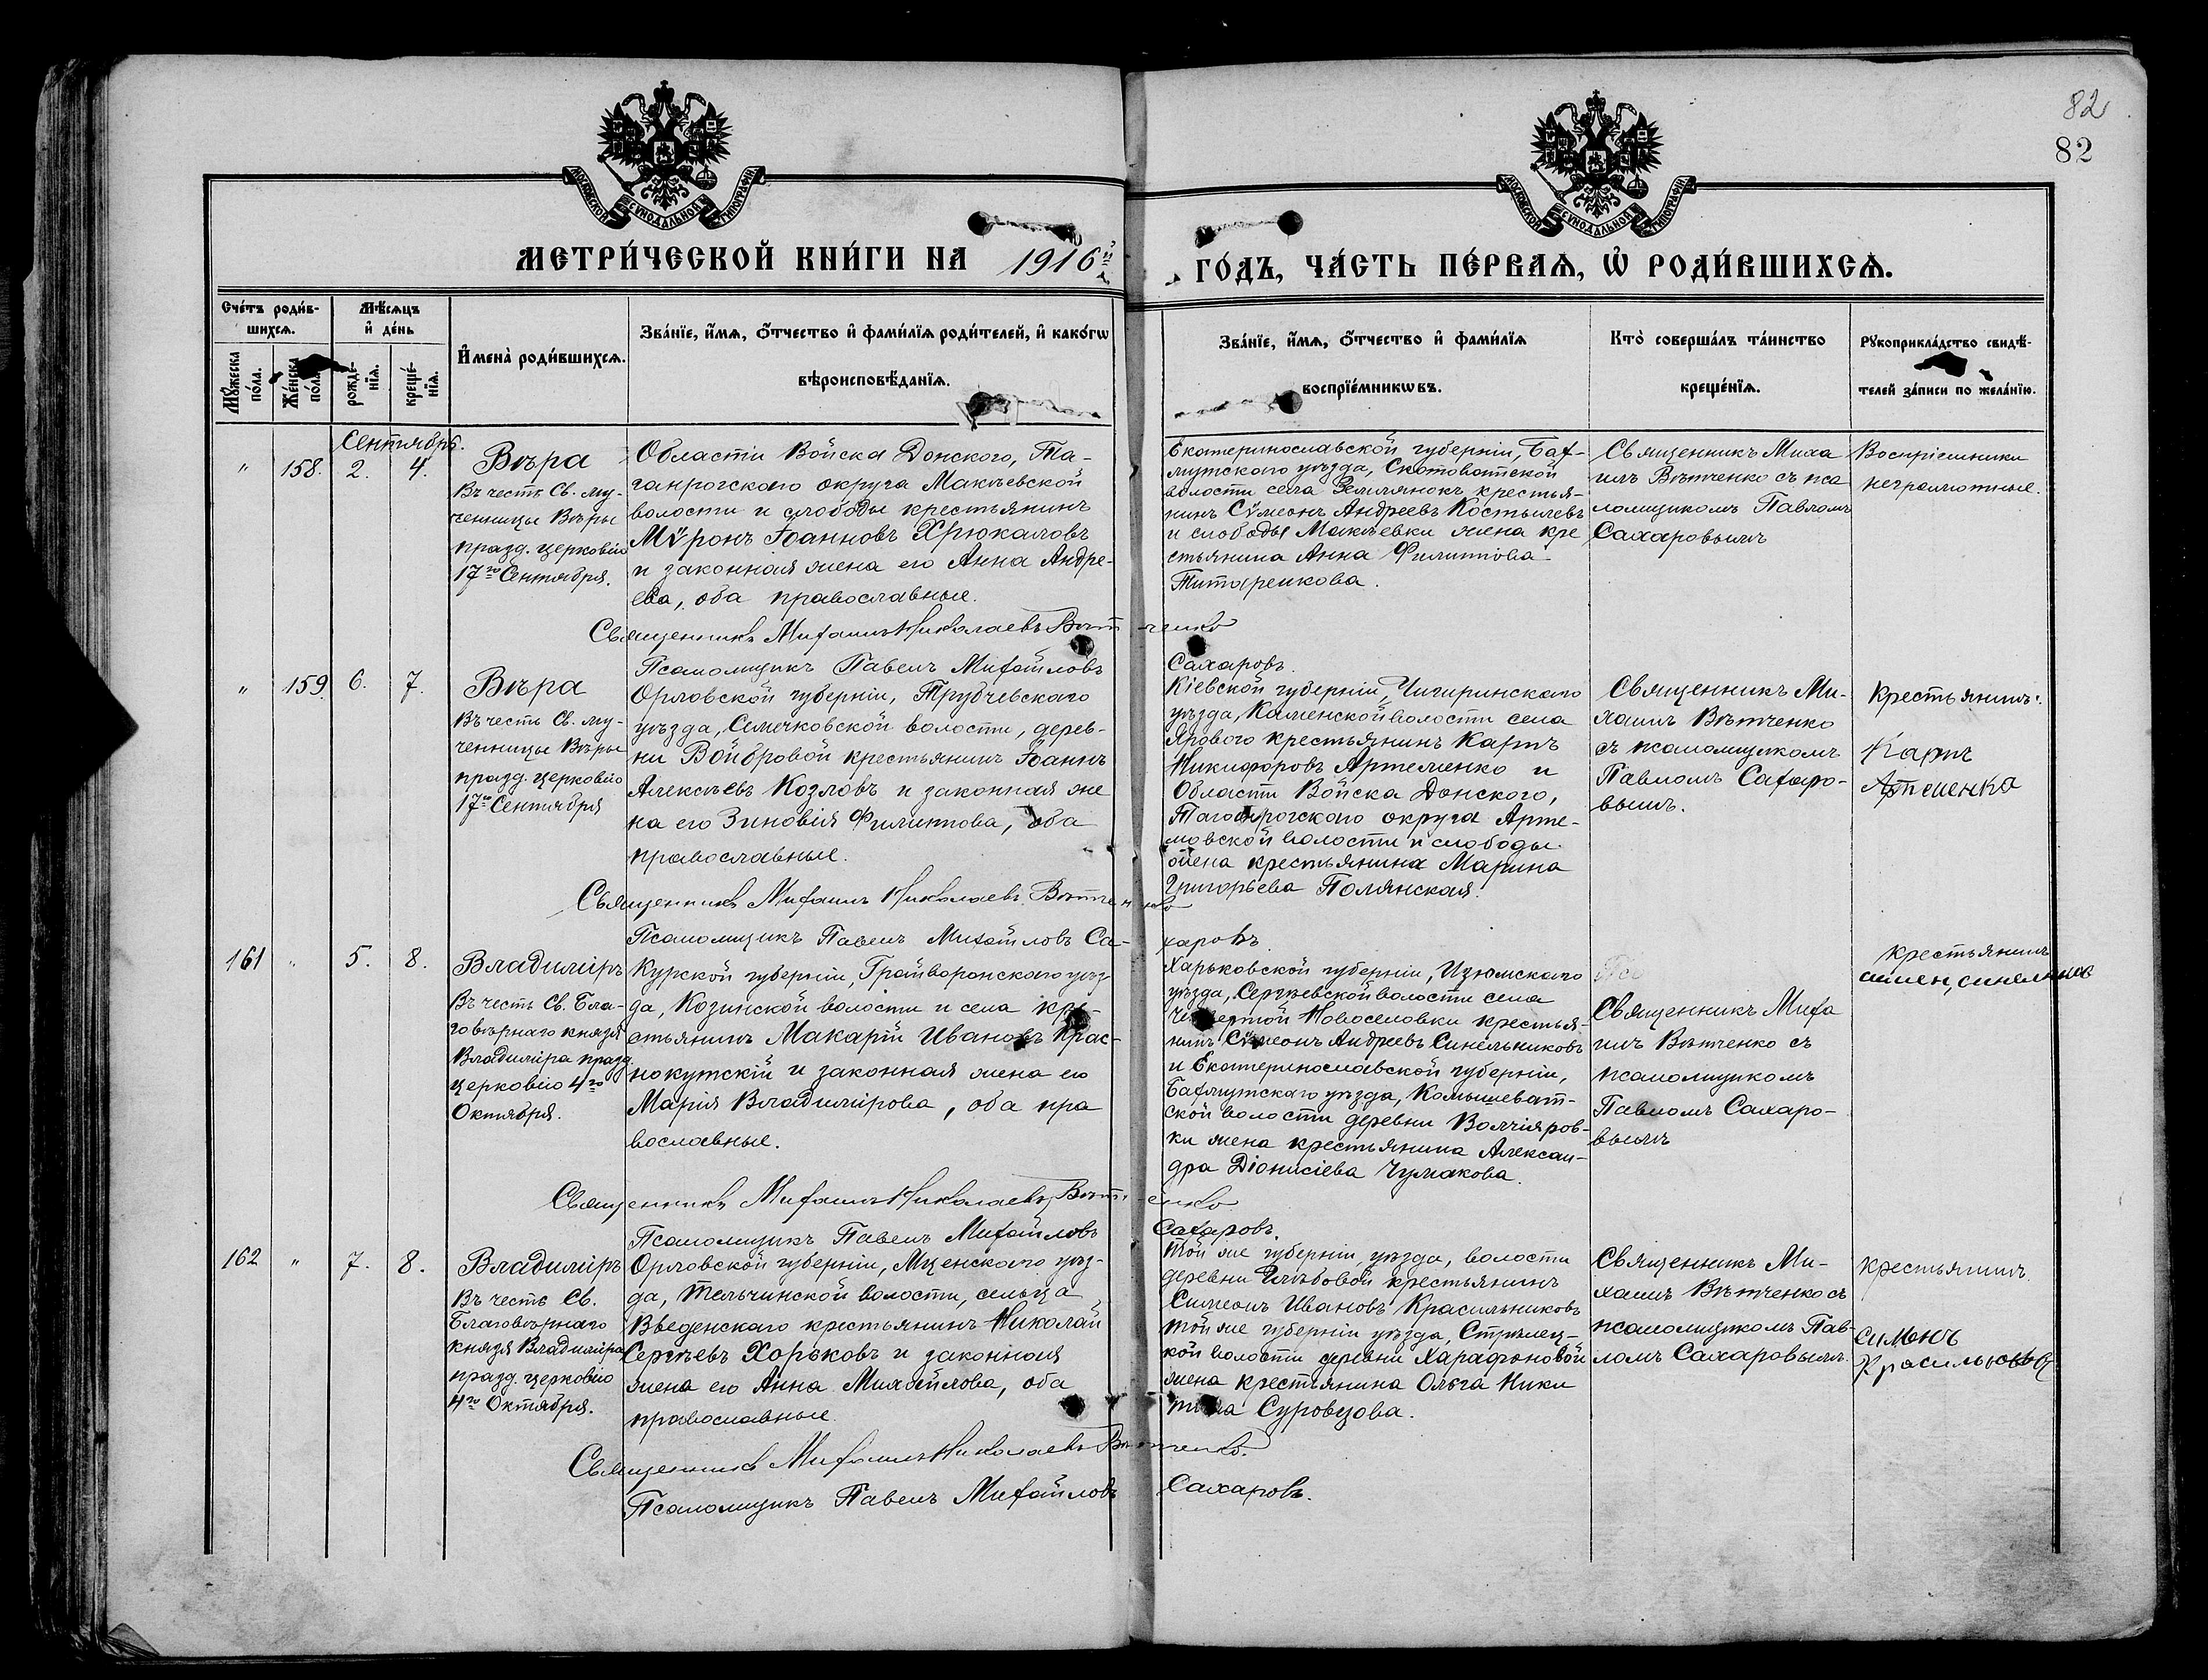 82
82
МОСКОВСКОЙ СѴНОДАЛЬНОЙ ТИПОГРАФІИ
МОСКОВСКОЙ СѴНОДАЛЬНОЙ ТИПОГРАФІИ
МЕТРИ́ЧЕСКОЙ КНИ́ГИ НА 1916й
ГО́ДЪ, ЧА́СТЬ ПЕ́РВАѦ, Ѡ҆ РОДИ́ВШИХСѦ.
Сче́тъ роди́в-
шихсѧ.
Мꙋ́жеска по́ла.
Же́нска по́ла.
Мѣ́сѧцъ
и҆ де́нь
рожде́-
нїѧ.
креще́-
нїѧ.
И҆мена̀ роди́вшихсѧ.
Зва́нїе, и҆́мѧ, ѻ҆́тчество и҆ фами́лїѧ роди́телей, и҆ како́гѡ
вѣроисповѣ́данїѧ.
Зва́нїе, и҆́мѧ, ѻ҆́тчество и҆ фами́лїѧ
воспрїе́мникѡвъ.
Кто̀ соверша́лъ та́инство
креще́нїѧ.
Рꙋкоприкла́дство свидѣ́-
телей за́писи по жела́нїю.
Сентябрь.
" 158. 2. 4.
Вѣра
Въ честь Св. му-
ченницы Вѣры
празд. церковію
17го Сентября.
Области Войска Донского, Та-
ганрогского округа Макѣевской
волости и слободы крестьянинъ
Мѵронъ Іоанновъ Хрюкаловъ
и законная жена его Анна Андре-
ева, оба православные.
Екатеринославской губерніи, Бах-
мутского уѣзда, Скотоватской
волости села Землянокъ крестья-
нинъ Сѵмеонъ Андреевъ Костылевъ
и слободы Макѣевки жена кре
стьянина Анна Филиппова
Титаренкова.
Священникъ Миха
илъ Вѣтченко съ пса
ломщикомъ Павломъ
Сахаровымъ
Воспріемники
неграмотные.
Священникъ Михаилъ Николаевъ Вѣтченко
Псаломщикъ Павелъ Михайловъ Сахаровъ.
" 159 6. 7.
Вѣра
Въ честь Св. му-
ченницы Вѣры
празд. церковію
17го Сентября
Орловской губерніи, Трубчевского
уѣзда, Семячковской волости, дерев-
ни Войбровой крестьянинъ Іоаннъ
Алексѣевъ Козловъ и законная же
на его Зиновія Филиппова, оба
православные.
Кіевской губерніи, Чигиринскаго
уѣзда, Каменской волости села
Ярового крестьянинъ Карпъ
Никифоровъ Артеменко и
Области Войска Донского,
Таганрогского округа Арте-
мовской волости и слободы
жена крестьянина Марина
Григорьева Полянская.
Священникъ Ми-
хаилъ Вѣтченко
съ псаломщикомъ
Павломъ Сахаро-
вымъ.
Крестьянинъ:
Карпъ
Артеменка
Священникъ Михаилъ Николаевъ Вѣтченко
Псаломщикъ Павелъ Михайловъ Сахаровъ.
161 " 5. 8.
Владиміръ
Въ честь Св. Бла-
говѣрнаго князя
Владиміра празд.
церковію 4го
Октября.
Курской губерніи, Грайворонскаго уѣз
да, Козинской волости и села кре-
стьянинъ Макарій Ивановъ Крас-
нокутскій и законная жена его
Марія Владимірова, оба пра
вославные.
Харьковской губерніи, Изюмскаго
уѣзда, Сергѣевской волости села
Четвертой Новоселовки крестья-
нинъ Сѵмеонъ Андреевъ Синельниковъ
и Екатеринославской губерніи,
Бахмутскаго уѣзда, Комышеват-
ской волости деревни Волчіяров-
ки жена крестьянина Алексан-
дра Діонисіева Чумакова.
Священникъ Миха
илъ Вѣтченко съ
псаломщикомъ
Павломъ Сахаро-
вымъ
крестьянинъ
Священникъ Михаилъ Николаевъ Вѣтченко
Псаломщикъ Павелъ Михайловъ Сахаровъ.
162 " 7. 8.
Владиміръ
Въ честь Св.
Благовѣрнаго
князя Владиміра
празд. церковію
4го Октября.
Орловской губерніи, Мценскаго уѣз-
да, Тельчинской волости, сельца
Введенскаго крестьянинъ Николай
Сергѣевъ Хорьковъ и законная
жена его Анна Михайлова, оба
православные.
Той же губерніи уѣзда, волости
деревни Глѣбовой крестьянинъ
Симеонъ Ивановъ Красильниковъ
той же губерніи уѣзда, Стрѣлец-
кой волости деревни Харафоновой
жена крестьянина Ольга Ники
тина Суровцова.
Священникъ Ми-
хаилъ Вѣтченко съ
псаломщикомъ Пав-
ломъ Сахаровымъ.
крестьянинъ
Священникъ Михаилъ Николаевъ Вѣтченко.
Псаломщикъ Павелъ Михайловъ Сахаровъ.